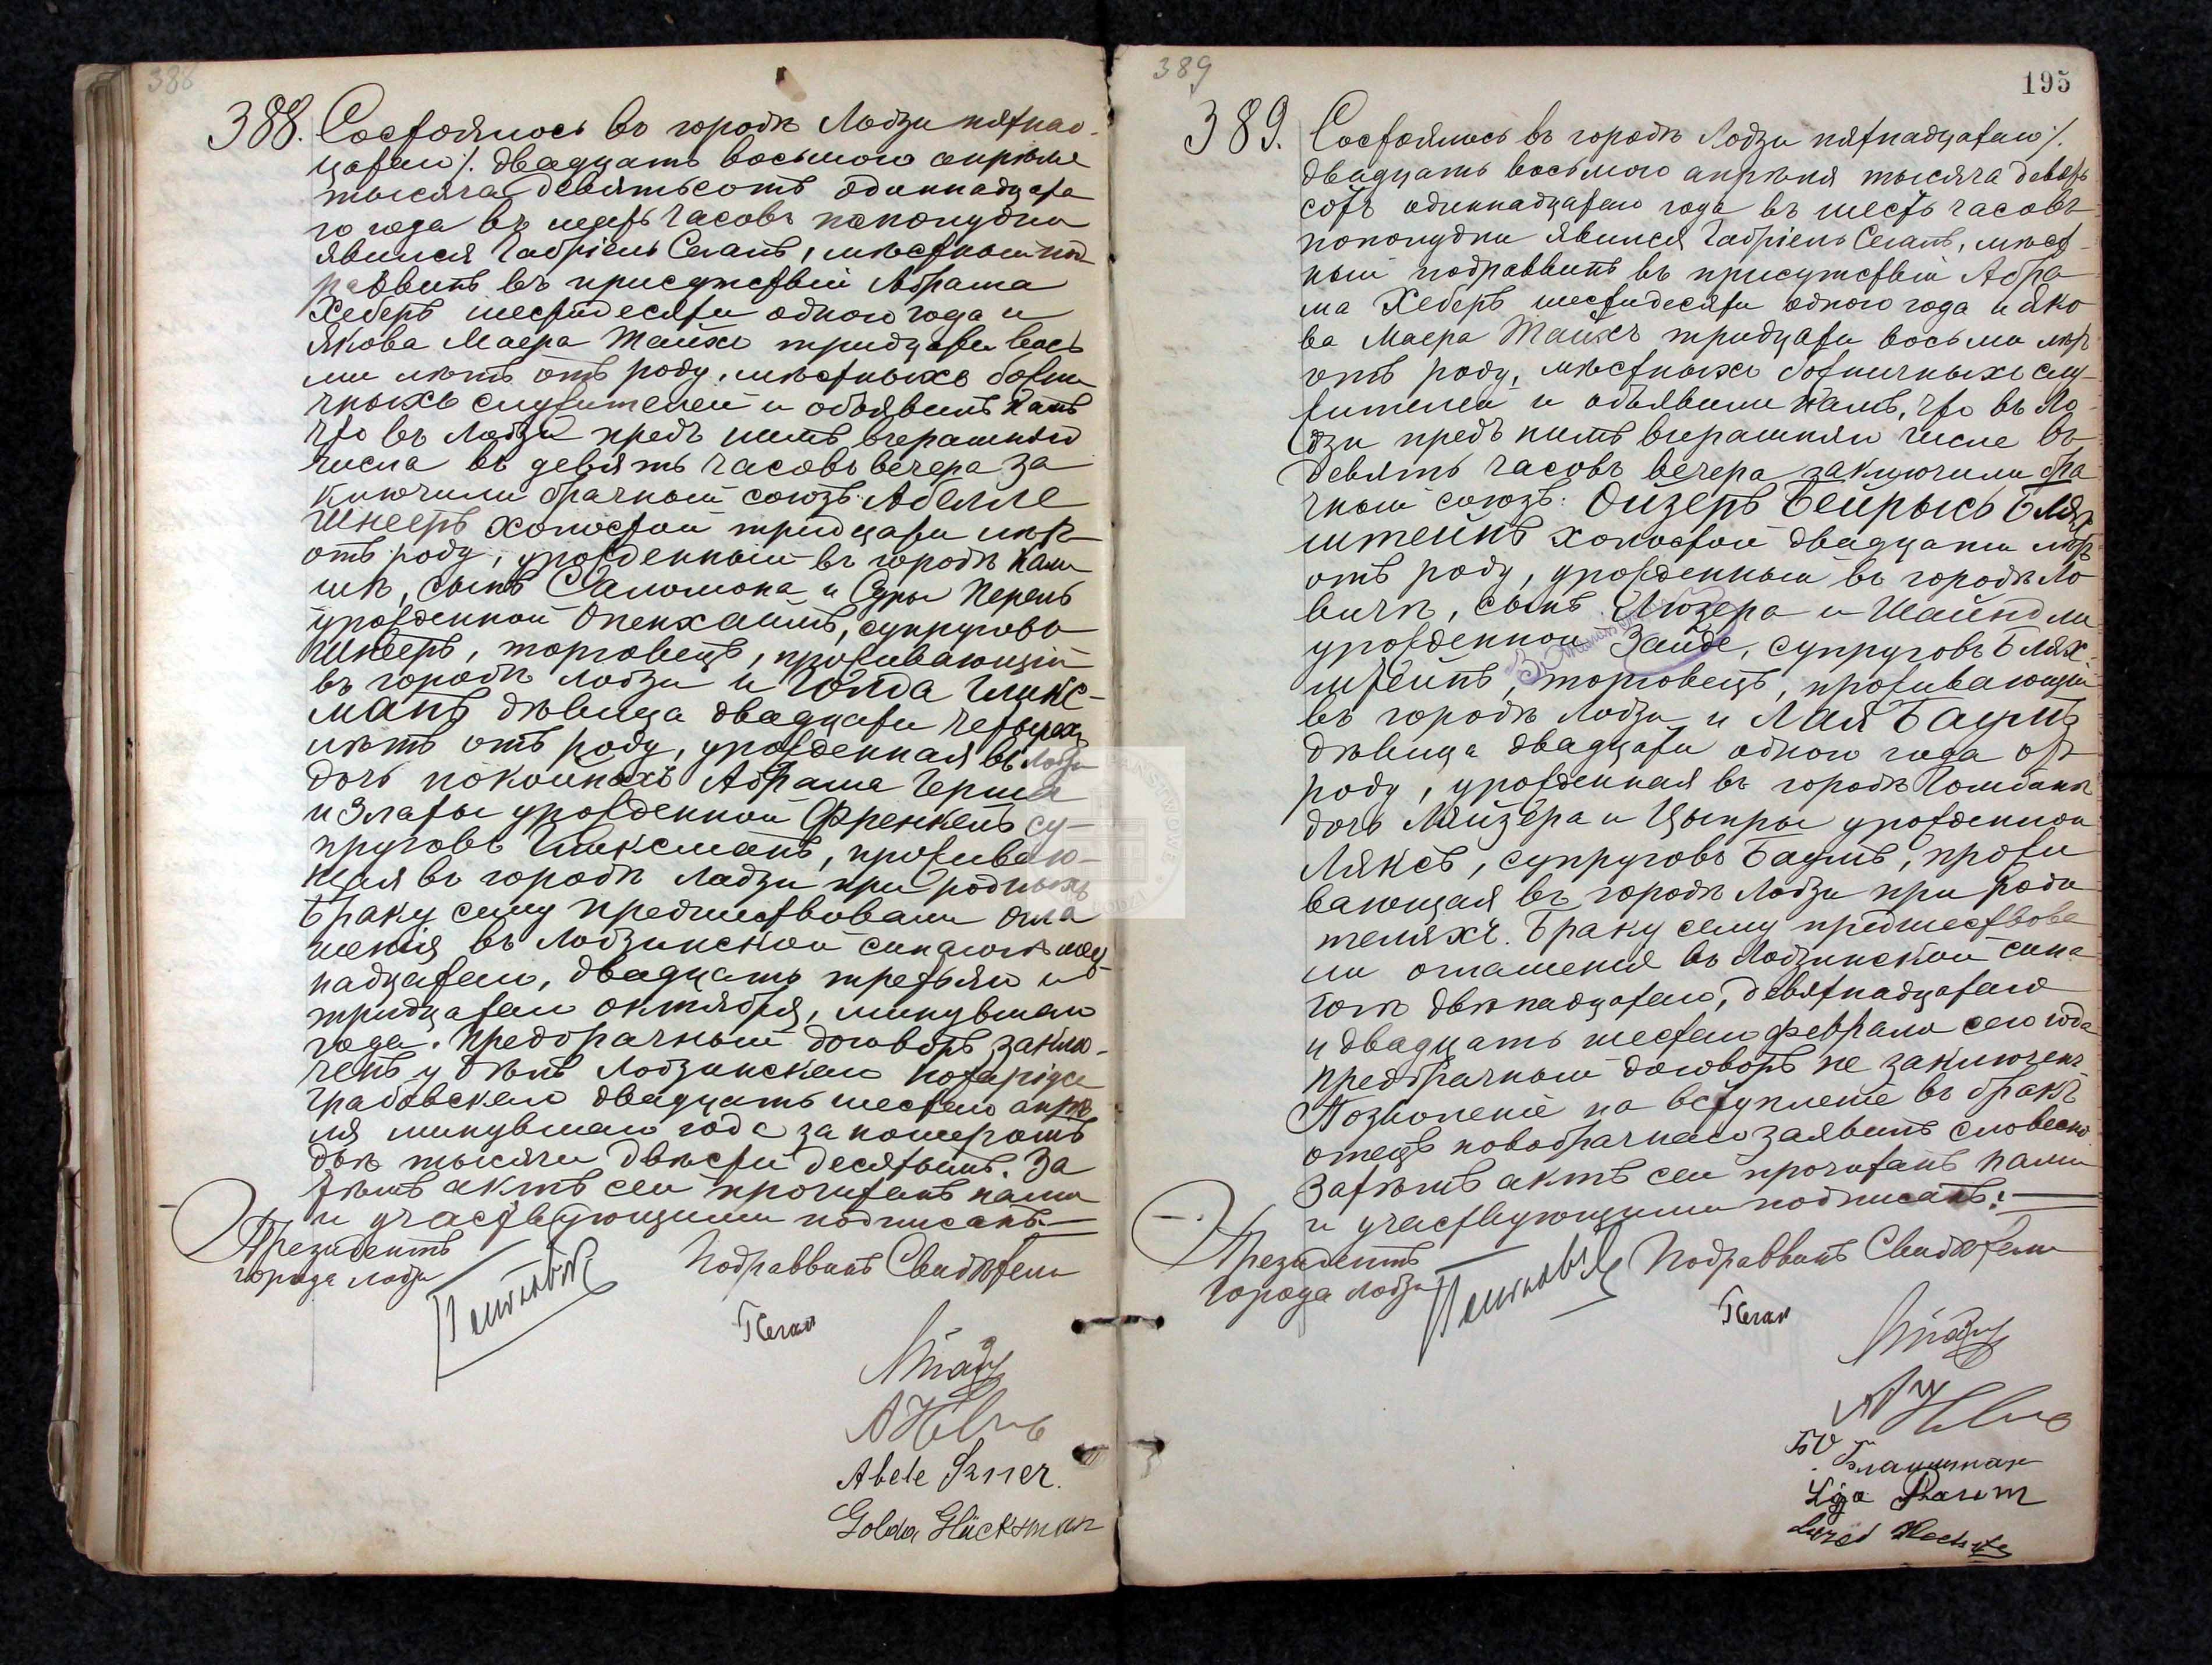 388
388. Состоялось въ городѣ Лодзи пятнад-
цатаго/. двадцать восьмого апрѣля
тысяча девятьсотъ одиннадцата
го года въ шесть часовъ пополудни
явился Габріель Сегалъ, мѣстный под
раввинъ въ присутствіи Абрама
Хеберъ шестидесяти одного года и
Якова Маера Тайхъ тридцати вось
ми лѣтъ отъ роду, мѣстныхъ божни
чныхъ служителей и объявилъ намъ
что въ Лодзи предъ нимъ вчерашняго
числа въ девять часовъ вечера за
ключили брачный союзъ: Абелле
Шнееръ холостой тридцати лѣтъ
отъ роду, урожденный въ городѣ Кали
шѣ, сынъ Саломона и Суры Перель
урожденной Опенхаймъ, супруговъ
Шнееръ, торговецъ, проживающій
въ городѣ Лодзи и Голда Гликс-
манъ дѣвица двадцати четырехъ
лѣтъ отъ роду, урожденная въ Лодзи
дочь покойныхъ Абрама Герша
и Златы урожденной Френкель су-
пруговъ Гликсманъ, проживаю-
щая въ городѣ Лодзи при родныхъ
Браку сему предшествовали огла
шенія въ Лодзинской синагогѣ шест-
надцатаго, двадцать третьяго и
тридцатаго октября, минувшаго
года. Предбрачный договоръ заклю-
ченъ у дѣлъ Лодзинскаго нотаріуса
Грабовскаго двадцать шестаго апрѣ
ля минувшаго года за номеромъ
двѣ тысячи двѣсти десятымъ. За
тѣмъ актъ сей прочитанъ нами
и участвующими подписанъ.—
Президентъ
города Лодзи
Подраввинъ Свидѣтели
Сегал
Abele Szner.
Golda Glücksman
389
195
389. Состоялось въ городѣ Лодзи пятнадцатаго/.
двадцать восьмого апрѣля тысяча девять
сотъ одиннадцатаго года въ шесть часовъ
пополудни явился Габріель Сегалъ, мѣст-
ный подраввинъ въ присутствіи Абра
ма Хеберъ шестидесяти одного года и Яко
ва Маера Тайхъ тридцати восьми лѣтъ
отъ роду, мѣстныхъ божничныхъ слу-
жителей и объявили намъ, что въ Ло-
дзи предъ нимъ вчерашняго числа въ
девять часовъ вечера заключили бра
чный союзъ: Ойзеръ Бейрысъ Блях
штейнъ холостой двадцати лѣтъ
отъ роду, урожденный въ городѣ Ло
вичѣ, сынъ Люзера и Шайндли
урожденной Зайде, супруговъ Блях-
штейнъ, торговецъ, проживающій
въ городѣ Лодзи и Лая Баумъ
дѣвица двадцати одного года отъ
роду, урожденная въ городѣ Гомбинѣ
дочь Лайзера и Цыпры урожденной
Ляксъ, супруговъ Баумъ, прожи
вающая въ городѣ Лодзи при роди
теляхъ. Браку сему предшествова
ли оглашенія въ Лодзинской сина
гогѣ двѣнадцатаго, девятнадцатаго
и двадцать шестаго февраля сего года
предбрачный договоръ не заключенъ
Позволеніе на вступленіе въ бракъ
отецъ новобрачнаго заявилъ словесно.
Затѣмъ актъ сей прочитанъ нами
и участвующими подписанъ:—
Президентъ
города Лодзи
Подраввинъ Свидѣтели
Сегал